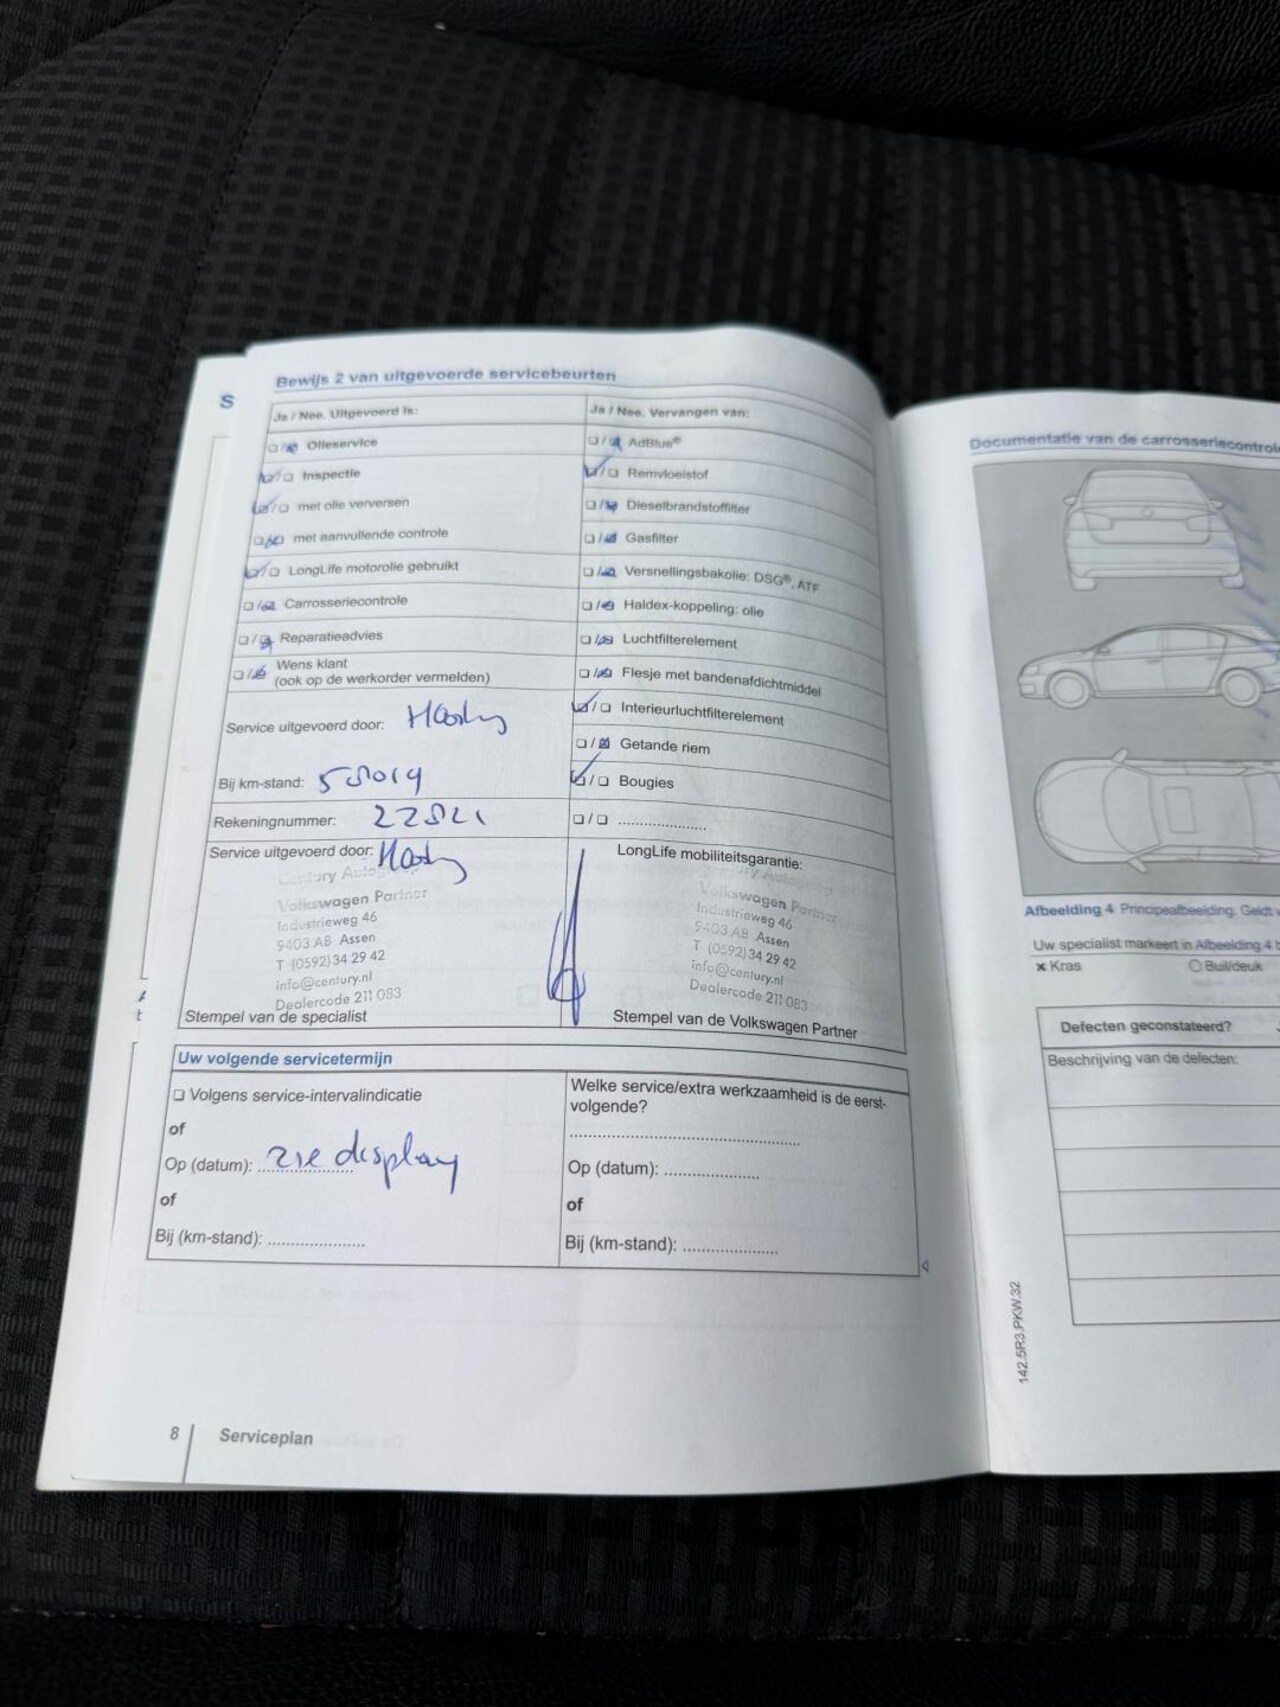 Bewijs 2 van uitgevoerde servicebeurten
S
Ja / Nee. Uitgevoerd is:
Olieservice
Inspectie
met olie verversen
met aanvullende controle
LongLife motorolie gebruikt
Carrosseriecontrole
Reparatieadvies
Wens klant
(ook op de werkorder vermelden)
Service uitgevoerd door:
Bij km-stand: 58019
Rekeningnummer:
Service uitgevoerd door:
Volkswagen Partner
Industrieweg 46
9403 AB Assen
T (0592) 34 29 42
info@century.nl
Dealercode 211 083
Stempel van de specialist
Ja / Nee. Vervangen van:
AdBlue®
Remvloeistof
Dieselbrandstoffilter
Gasfilter
Versnellingsbakolie: DSG®, ATF
Haldex-koppeling: olie
Luchtfilterelement
Flesje met bandenafdichtmiddel
Interieurluchtfilterelement
Getande riem
Bougies
....................
LongLife mobiliteitsgarantie:
Volkswagen Partner
Industrieweg 46
9403 AB Assen
T (0592) 34 29 42
info@century.nl
Dealercode 211 083
Stempel van de Volkswagen Partner
Uw volgende servicetermijn
Volgens service-intervalindicatie
of
Op (datum): zie display
of
Bij (km-stand): ....................
Welke service/extra werkzaamheid is de eerst-
volgende?
Op (datum): ....................
of
Bij (km-stand): ....................
8 Serviceplan
Documentatie van de carrosseriecontrole
Afbeelding 4 Principeafbeelding. Geldt
Uw specialist markeert in Afbeelding 4
× Kras
Buil/deuk
Defecten geconstateerd?
Beschrijving van de defecten:
142.5R3.PKW.32